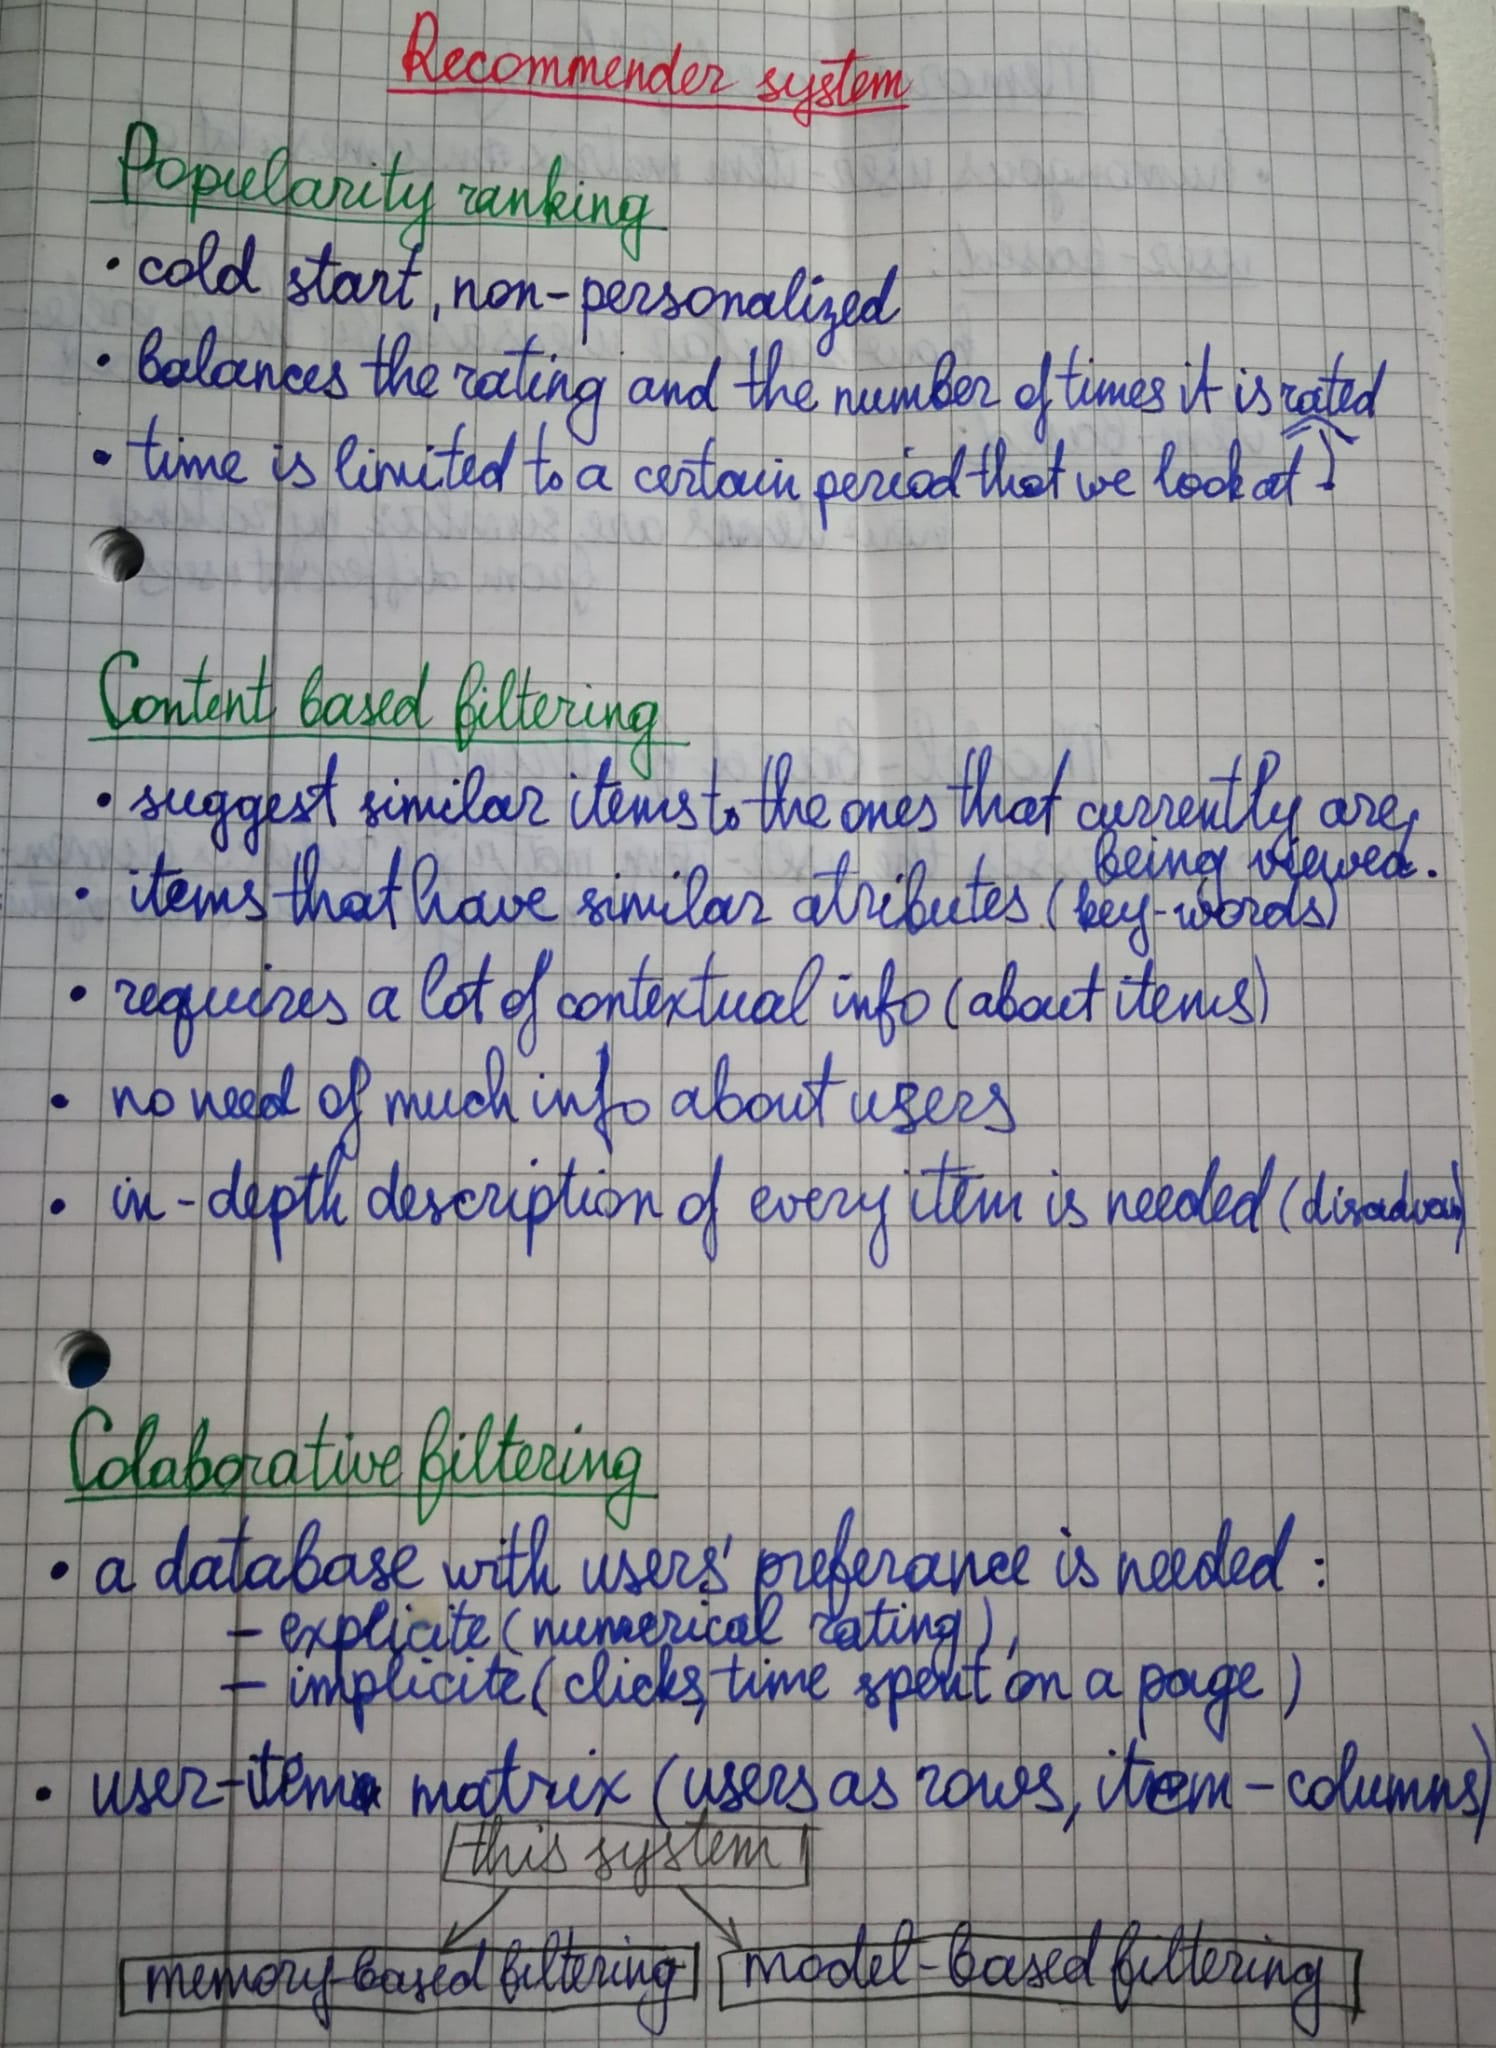 Recommender system
Popularity ranking
• cold start, non-personalized
• balances the rating and the number of times it is rated
• time is limited to a certain period that we look at
Content based filtering
• suggest similar items to the ones that currently are
being viewed.
• items that have similar atributes (key-words)
• requires a lot of contextual info (about items)
• no need of much info about users
• in-depth description of every item is needed (disadvan)
Colaborative filtering
• a database with users' preferance is needed:
- explicite (numerical rating),
- implicite (clicks, time spent on a page)
• user-item matrix (users as rows, item - columns)
this system
memory-based filtering model-based filtering